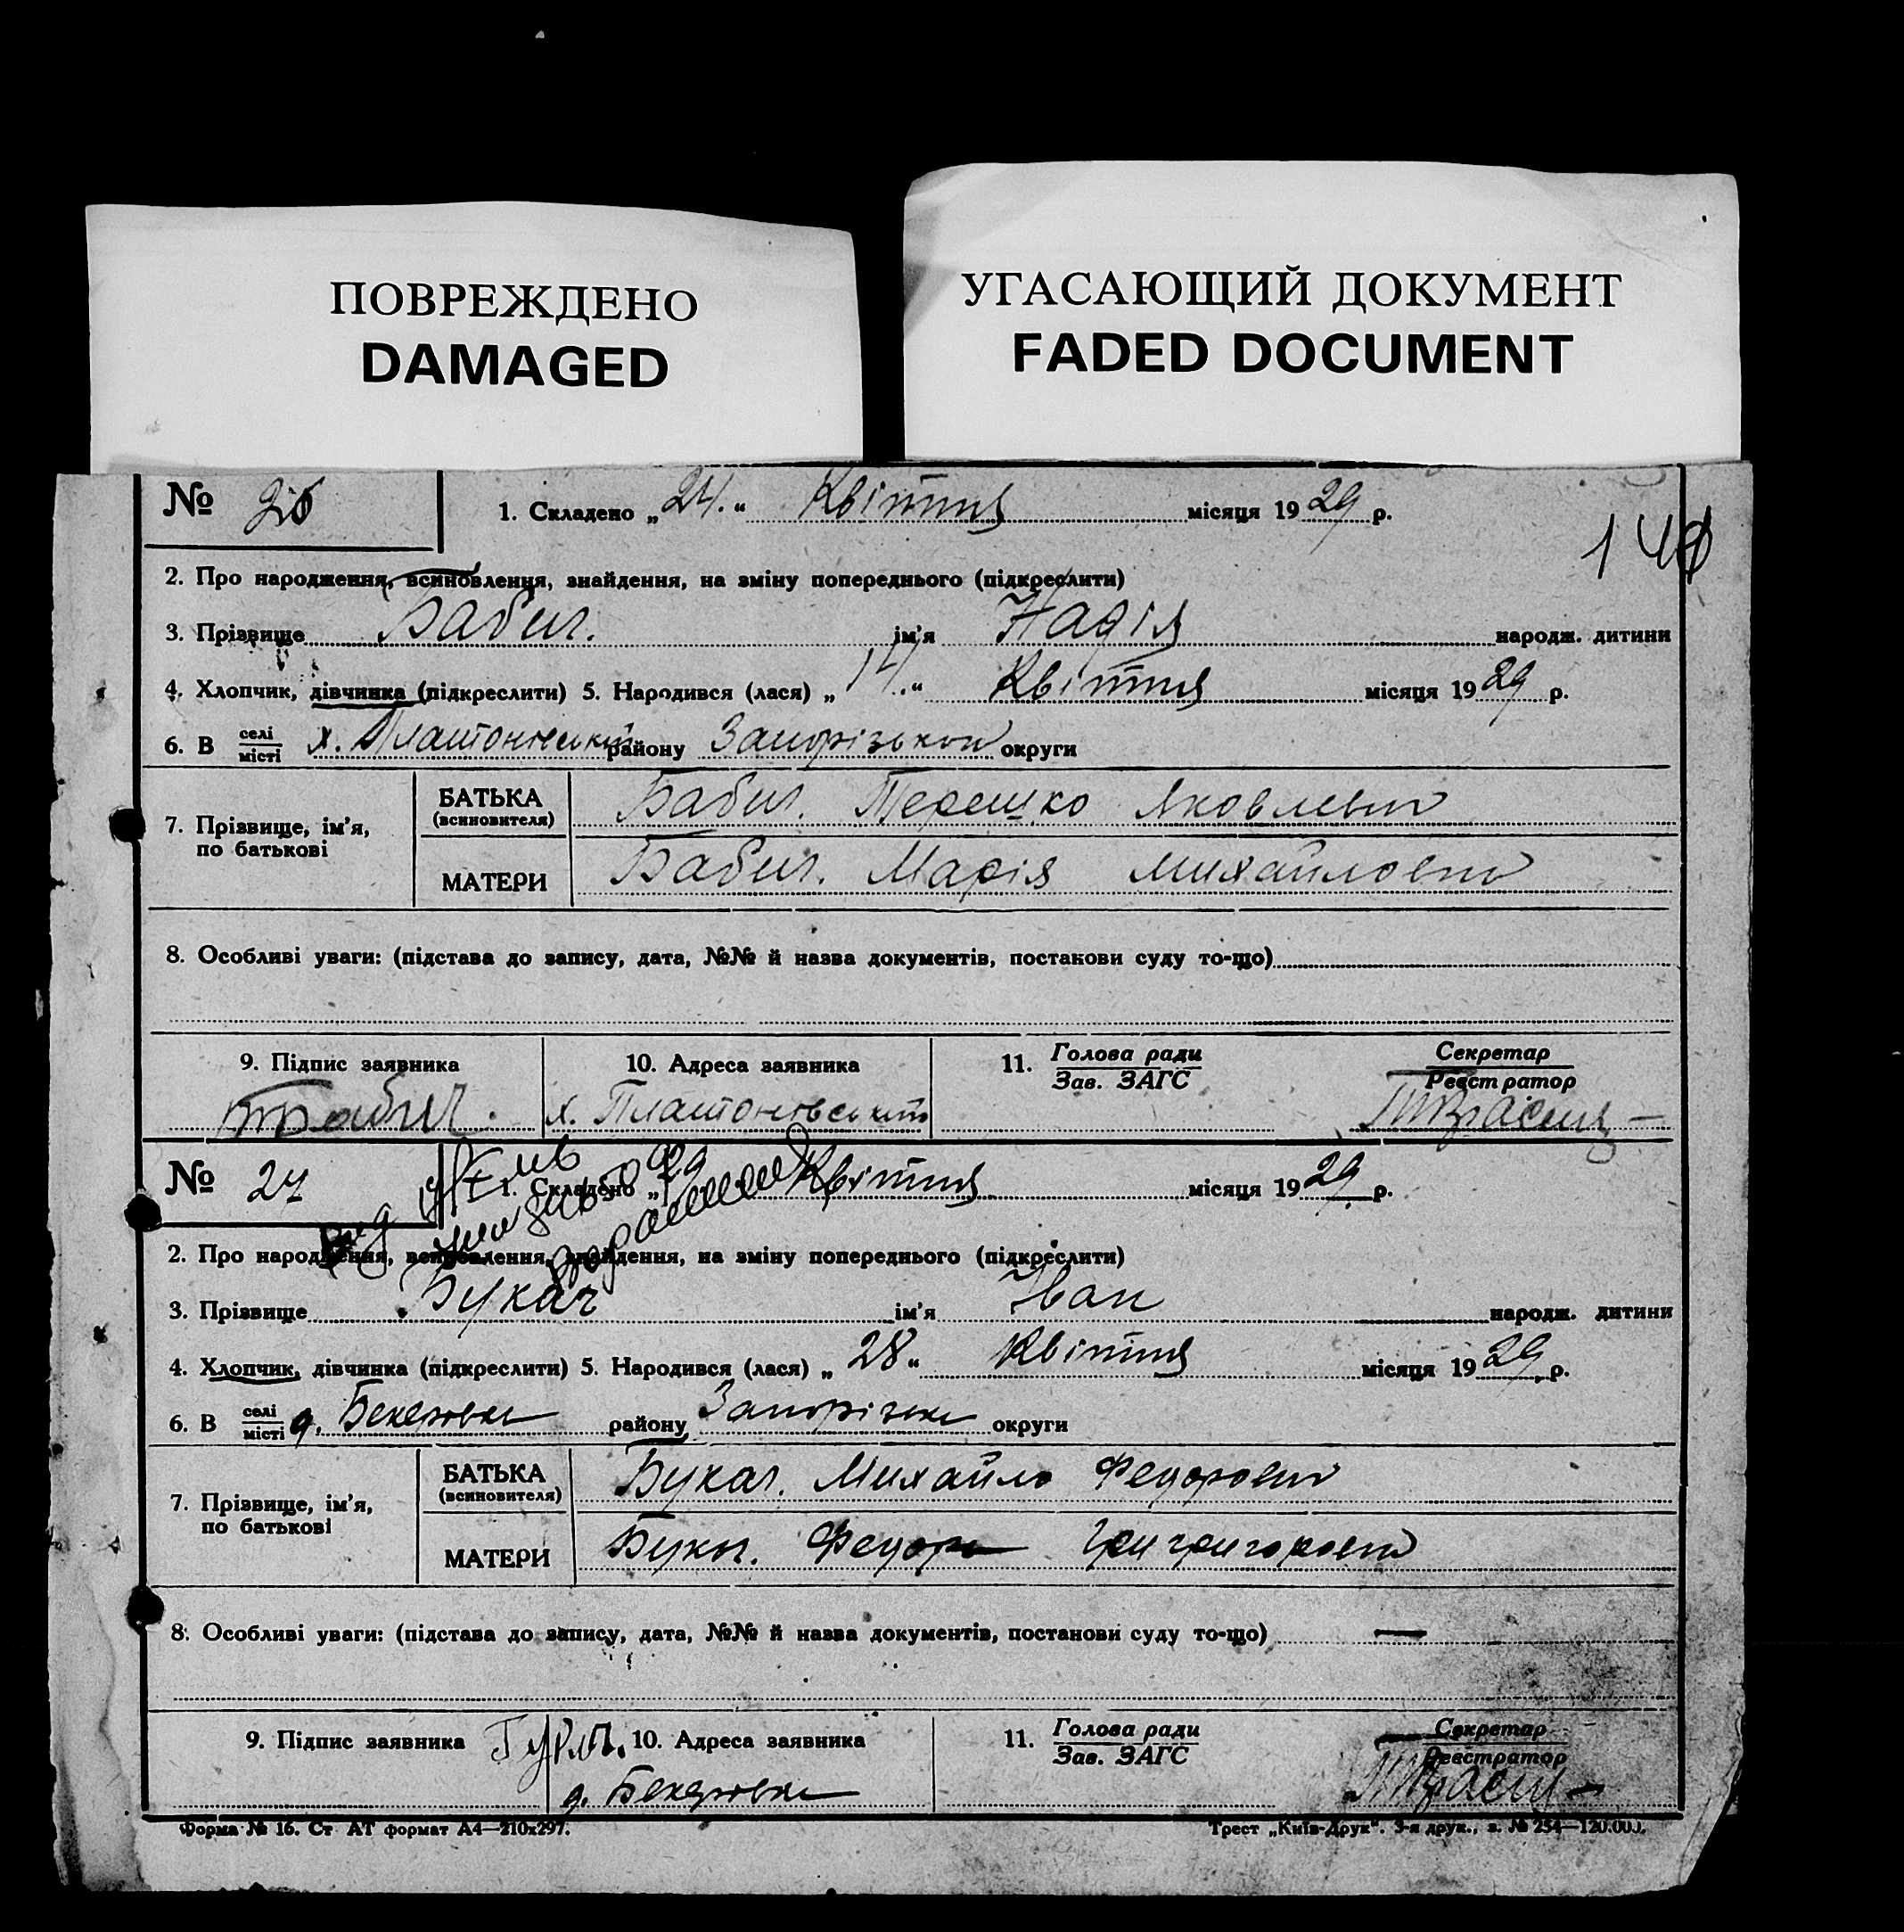 ПОВРЕЖДЕНО
DAMAGED
УГАСАЮЩИЙ ДОКУМЕНТ
FADED DOCUMENT
№ 1. Складено „24.“ Квітня місяця 1929 р.
2. Про народження, всиновлення, знайдення, на зміну попереднього (підкреслити)
3. Прізвище Бабич. ім'я Надія народж. дитини
4. Хлопчик, дівчинка (підкреслити) 5. Народився (лася) „14“ Квітня місяця 1929 р.
6. В селі місті х. Платоновський району Запорізької округи
7. Прізвище, ім'я, по батькові
БАТЬКА (всиновителя) Бабич. Яковлевич
МАТЕРИ Бабич. Марія Михайловна
8. Особливі уваги: (підстава до запису, дата, №№ й назва документів, постанови суду то-що)
9. Підпис заявника 10. Адреса заявника 11. Голова ради Зав. ЗАГС Секретар Реєстратор
Бабич. х. Платонівський
№ 27 1. Складено „ Квітня місяця 1929 р.
2. Про народження, всиновлення, знайдення, на зміну попереднього (підкреслити)
3. Прізвище Букач ім'я Іван народж. дитини
4. Хлопчик, дівчинка (підкреслити) 5. Народився (лася) „28“ Квітня місяця 1929 р.
6. В селі місті району Запорізьке округи
7. Прізвище, ім'я, по батькові
БАТЬКА (всиновителя) Букач. Михайло Федорович
МАТЕРИ
8. Особливі уваги: (підстава до запису, дата, №№ й назва документів, постанови суду то-що) —
9. Підпис заявника 10. Адреса заявника 11. Голова ради Зав. ЗАГС Секретар Реєстратор
Форма № 16. Ст АТ формат А4—210х297. Трест „Київ-Друк“. 3-я друк., з. № 254—120.000.